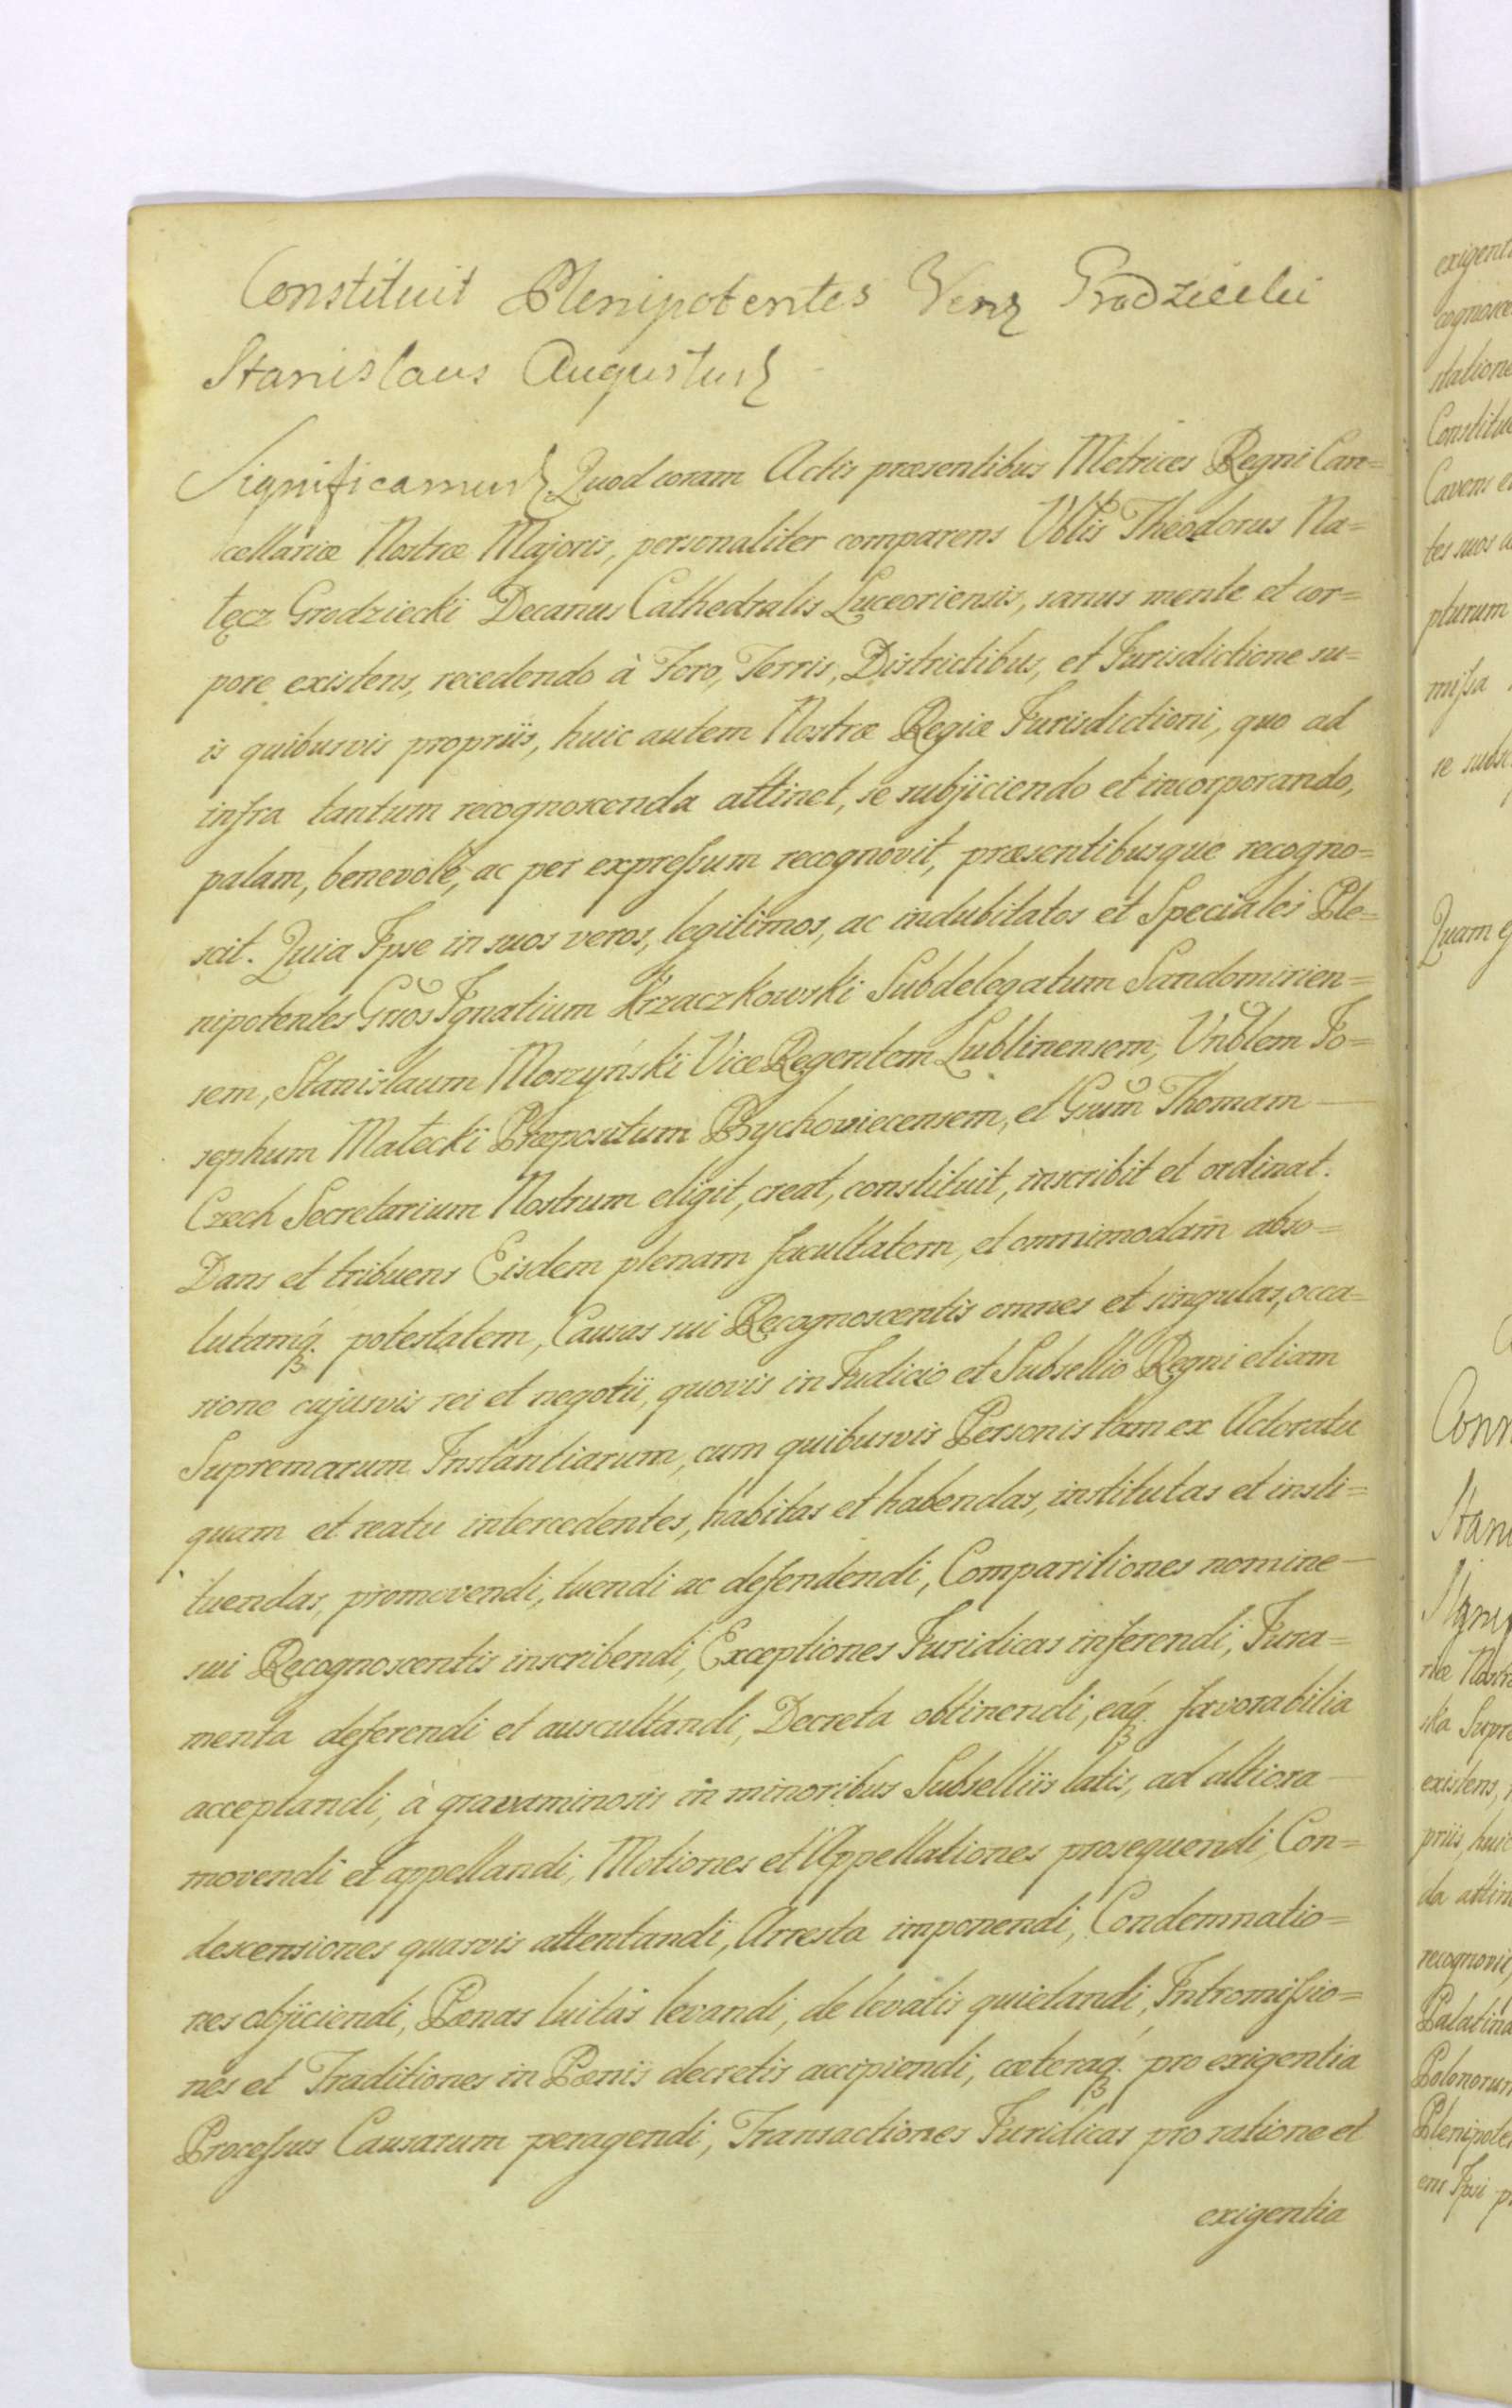 Constituit Plenipotentes Venz Grodziecki
Stanislaus Augustus
Significamus Quod coram Actis præsentibus Metrices Regni Can=
cellariæ Nostræ Majoris, personaliter comparens Vblis Theodorus Na=
łęcz Grodziecki Decanus Cathedralis Luceoriensis, sanus mente et cor=
pore existens, recedendo à Foro, Terris, Districtibus, et Jurisdictione su=
is quibusvis propriis, huic autem Nostræ Regiæ Jurisdictioni, quo ad
infra tantum recognoscenda attinet, se subjiciendo et incorporando,
palam, benevolè, ac per expressum recognovit, præsentibusque recogno=
scit. Quia Ipse in suos veros, legitimos, ac indubitatos et Speciales Ple=
nipotentes Gnos Ignatium Krzaczkowski Subdelegatum Sandomirien=
sem, Stanislaum Morzyński Vice Regentem Lublinensem, Vnblem Jo=
sephum Małecki Præpositum Psychoviecensem, et Gnum Thomam
Czech Secretarium Nostrum eligit, creat, constituit, inscribit et ordinat.
Dans et tribuens Eisdem plenam facultatem, et omnimodam abso=
lutamq. potestatem, Causas sui Recognoscentis omnes et singulas, occa=
sione cujusvis rei et negotii, quovis in Judicio et Subsellio Regni etiam
Supremarum Instantiarum, cum quibusvis Personis tam ex Actoratu
quam et reatu intercedentes, habitas et habendas, institutas et insti=
tuendas, promovendi, tuendi ac defendendi, Comparitiones nomine
sui Recognoscentis inscribendi, Exceptiones Juridicas inferendi, Jura=
menta deferendi et auscultandi, Decreta obtinendi, eaq. favorabilia
acceptandi, à gravaminosis in minoribus Subselliis latis, ad altiora
movendi et appellandi, Motiones et Appellationes prosequendi, Con=
descensiones quasvis attentandi, Arresta imponendi, Condemnatio=
nes objiciendi, Pœnas luitas levandi, de levatis quietandi, Intromissio=
nes et Traditiones in Pœnis decretis accipiendi, cæteraq. pro exigentia
Processus Causarum peragendi, Transactiones Juridicas pro ratione et
exigentia